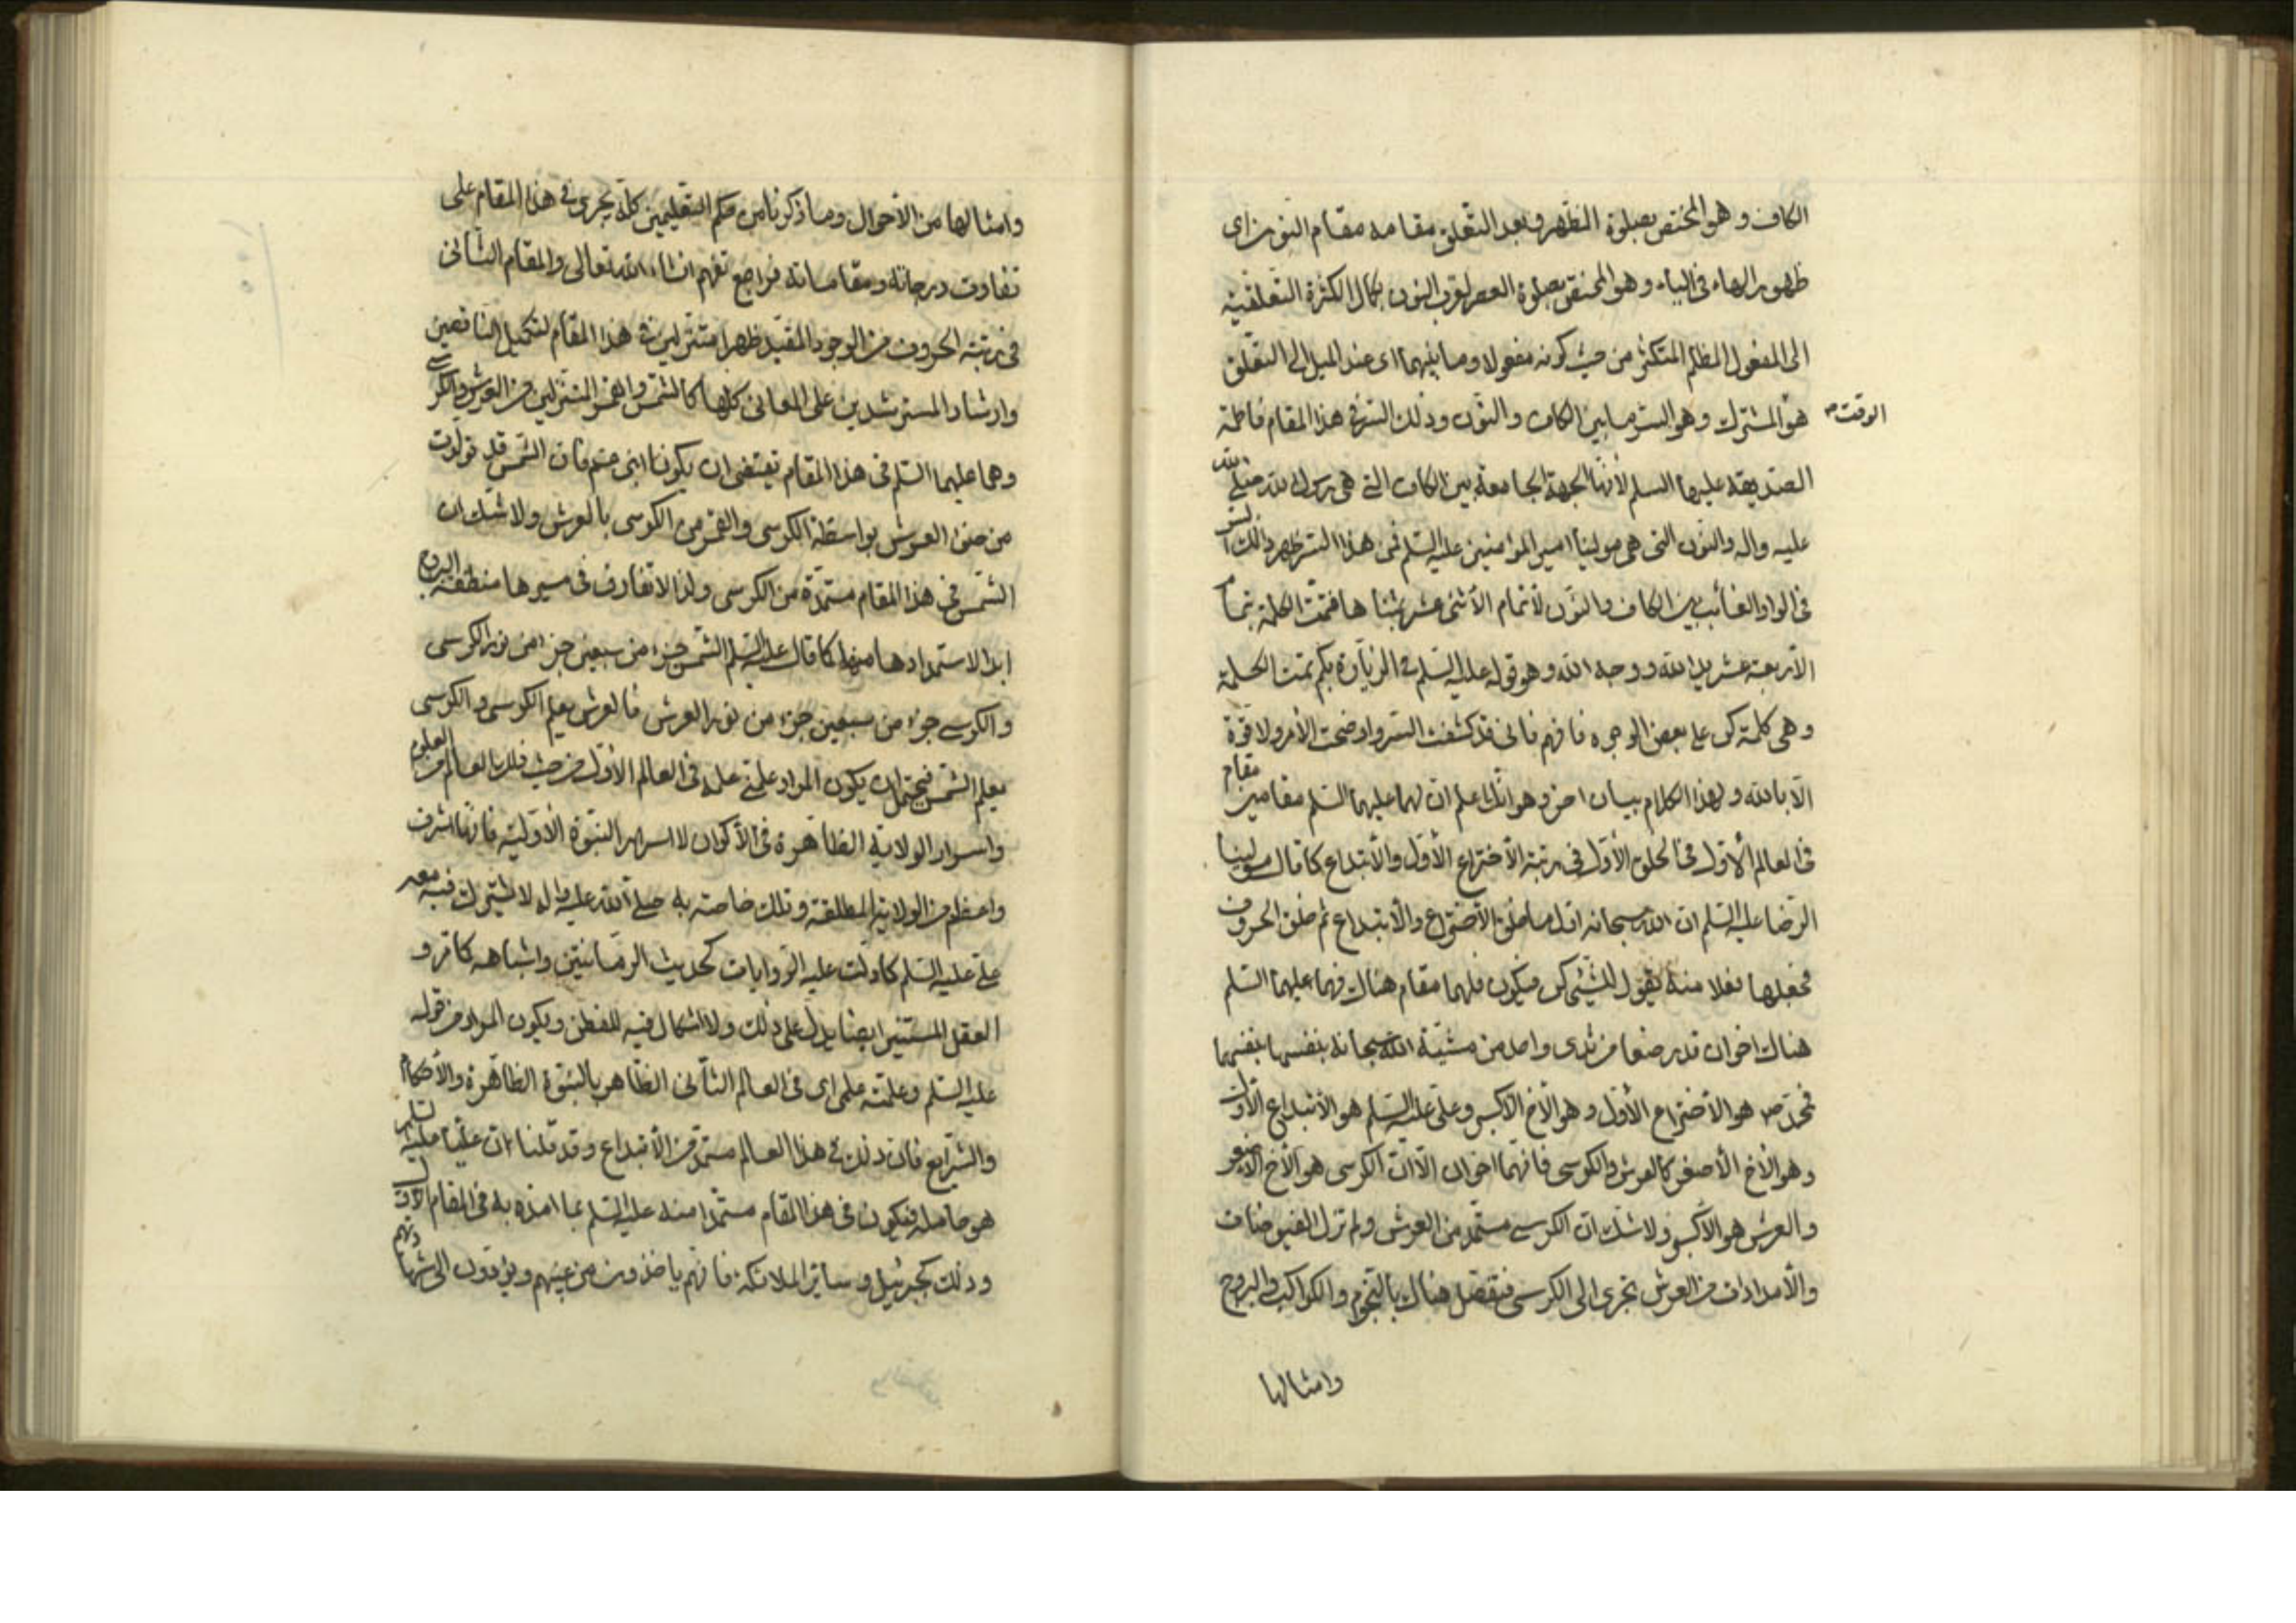 الكاف و هو المختص بصلوة الظهر و بعد التعلق مقامه مقام النون اى
ظهور الهاء فى الباء و هو المختص بصلوة العصر لقرب النون بكمال الكثرة التعلقية
الى المفعول المظلم المتكثر من حيث كونه مفعولا و ما بينهما اى عند الميل الى التعلق
هو الوقت المشترك و هو السر ما بين الكاف و النون و ذلك السر فى هذا المقام فاطمة
الصديقة عليها السلم لأنها الجهة الجامعة بين الكاف التى هى رسول الله صلى الله
عليه و اله و النون التى هى مولينا امير المؤمنين عليه السلم فمن هذا السر ظهر ذالك السر
فى الواو الغائب بين الكاف و النون لأتمام الأثنى عشر بثنا ها فتمت الكلمة بتمام
الأربعة عشر يد الله و وجه الله و هو قوله عليه السلم فى الزيارة بكم تمت الكلمة
و هى كلمة كن على بعض الوجوه فافهم فانى قد كشفت السر و اوضحت الأمر و لا قوة
الا بالله و لهذا الكلام بيان اخر و هو انك اعلم ان لهما عليهما السلم مقامين مقام
فى العالم الاول فى الخلق الأول فى رتبة الأختراع الأول و الأبتداع كما قال مولينا
الرضا عليه السلم ان الله سبحانه اول ما خلق الأختراع و الأبتداع ثم خلق الحروف
فجعلها فعلا منه يقول للشيئ كن فيكون فلهما مقام هناك فهما عليهما السلم
هناك اخوان قد رضعا من ثدى واحد من مشية الله سبحانه بنفسها بنفسهما
فمحمد ص هو الأختراع الأول و هو الأخ الأكبر و على عليه السلم هو الأبتداع الأول
و هو الأخ الأصغر كالعرش و الكرسى فانهما اخوان الا ان الكرسى هو الأخ الأصغر
و العرش هو الأكبر و لا شك ان الكرسى مستمد من العرش و لم تزل الفيوضات
و الأمدادات من العرش تجرى الى الكرسى فتفصل هناك بالنجوم و الكواكب و البروج
و امثالها
و امثالها من الأحوال و ما ذكرنا من حكم التعليمين كله يجرى فى هذا المقام على
تفاوت درجاته و مقاماته فراجع تفهم انشاء الله تعالى و المقام الثانى
فى رتبة الحروف من الوجود المقيد ظهرا متنزلين فى هذا المقام لتكميل الناقصين
و ارشاد المسترشدين على المعانى كلها كالشمس و القمر المتنزلين من العرش و الكرسى
و هما عليهما السلم فى هذا المقام تقتضى ان يكونا ابنى عم فان الشمس قد تولدت
من العرش بواسطة الكرسى و القمر من الكرسى بالعرش و لا شك ان
الشمس فى هذا المقام مستمدة من الكرسى و لذا لا تفارق فى مسيرها منطقة البروج
ابدا لاستمدادها منها كما قال عليه السلم الشمس جزء من سبعين جزء من نور الكرسى
و الكرسى جزء من سبعين جزء من نور العرش فالعرش يعلم الكرسى و الكرسى
يعلم الشمس فيحتمل ان يكون المراد علمنى علمه فى العالم الأول من حيث العالم العلوى
و اسرار الولاية الظاهرة فى الأكوان لا اسرار النبوة الأولية فانها اشرف
و اعظم من الولاية المطلقة و تلك خاصة به صلى الله عليه و اله لا يشترك فيه معه
على عليه السلم كما دلت عليه الروايات كحديث الرمانتين و اشباهه كما مر و
العقل المستنير ايضا يدل على ذلك و لا اشكال فيه للفطن و يكون المراد من قوله
عليه السلم و علمته علمى اى فى العالم الثانى الظاهر بالنبوة الظاهرة و الأحكام
و الشرايع فان ذلك فى هذا العالم مستمد من الأبتداع و قد قلنا ان عليا عليه السلم
هو حامله فيكون فى هذا المقام مستمدا منه عليه السلم بما امده به فى المقام الأول
و ذلك كجبرئيل و سائر الملائكة فانهم يأخذون من غيبهم و يؤدون الى شهادتهم